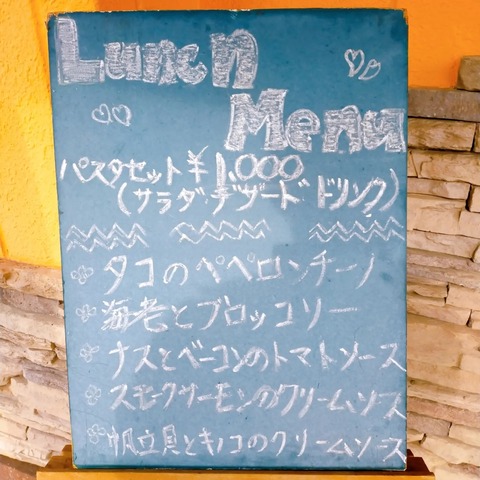 Lunch
Menu
パスタセット ¥1,000
(サラダ デザード ドリンク)
タコのペペロンチーノ
海老とブロッコリー
ナスとベーコンのトマトソース
スモークサーモンのクリームソース
帆立貝とキノコのクリームソース